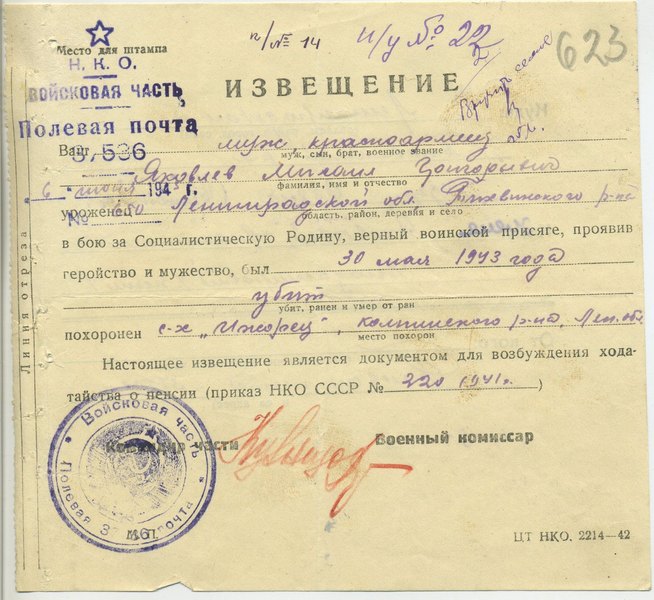 п/№ 14
И/у № 22/2
623
Место для штампа
Н. К. О.
ВОЙСКОВАЯ ЧАСТЬ
Полевая почта
37536
6 июня 1943 г.
№ 650
ИЗВЕЩЕНИЕ
Вручить семье
Ваш муж, красноармеец
муж, сын, брат, военное звание
Яковлев Михаил Григорьевич
фамилия, имя и отчество
уроженец Ленинградской обл. р-на
область, район, деревня и село
в бою за Социалистическую Родину, верный воинской присяге, проявив
геройство и мужество, был 30 мая 1943 года
убит
убит, ранен и умер от ран
похоронен с-х „Ижорец", колпинского р-на, Лен. обл
место похорон
Настоящее извещение является документом для возбуждения хода-
тайства о пенсии (приказ НКО СССР № 220 1941г.)
Командир части
Военный комиссар
Войсковая часть
Полевая почта
М.П.
ЦТ НКО. 2214—42
Линия отреза